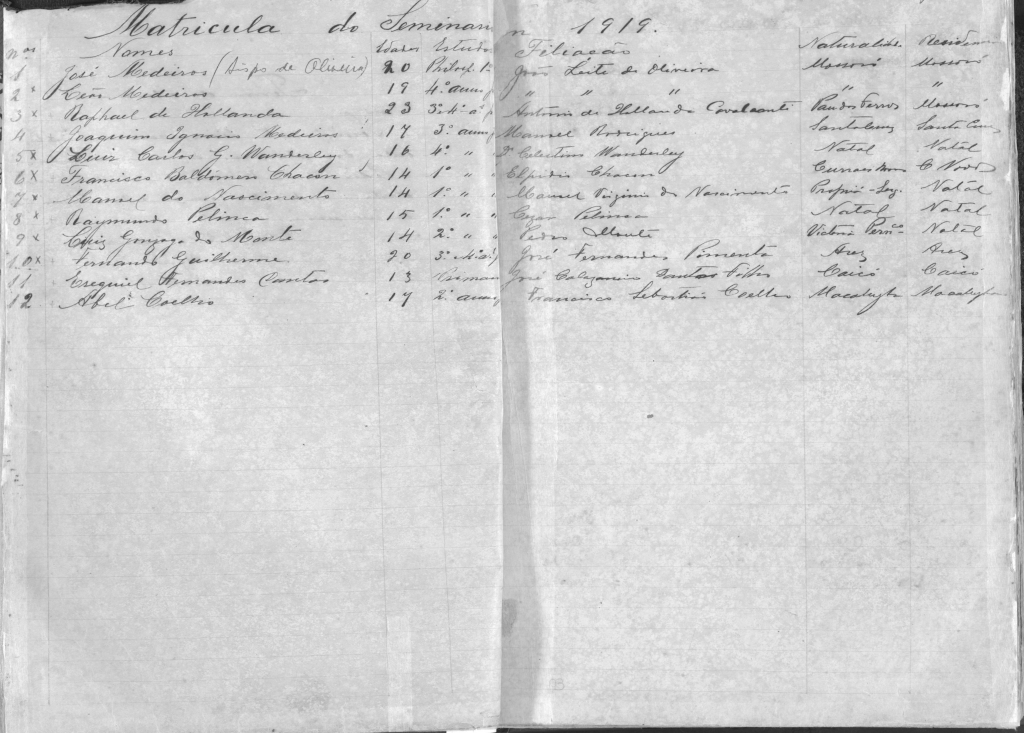 Matricula do Seminario 1919.
nos Nomes Idades Estudos Filiação Naturalid. Residen
1 José Medeiros (Bispo de Oliveira) 20 Philosf. João Leite de Oliveira Mossoró Mossoró
2 x Leão Medeiros 19 4º anno " " " " Mossoró
3 x Raphael de Hollanda 23 3º Antonio de Hollanda Cavalcanti Pau dos Ferros Mossoró
4 Joaquim Ignacio Medeiros 17 3º anno Manuel Rodrigues Santa Cruz Santa Cruz
5 x Luiz Carlos G. Wanderley 16 4º " Dr Celestino Wanderley Natal Natal
6 x Francisco Baldomero Chacon 14 1º " Elpidio Chacon Curraes Novos C Novos
7 x Manuel do Nascimento 14 1º " Manuel Virginio do Nascimento Propriá Natal
8 x Raymundo Pelinca 15 1º " Cezar Pelinca Natal Natal
9 x Luiz Gonzaga do Monte 14 2º " Pedro Monte Victoria Pernco Natal
10 x Fernando Guilherme 20 3º José Fernandes Pimenta Arez Arez
11 Ezequiel Fernandes Dantas 13 José Calazancio Dantas Filho Caicó Caicó
12 Abel Coelho 17 2º anno Francisco Sebastião Coelho Macahyba Macahyba